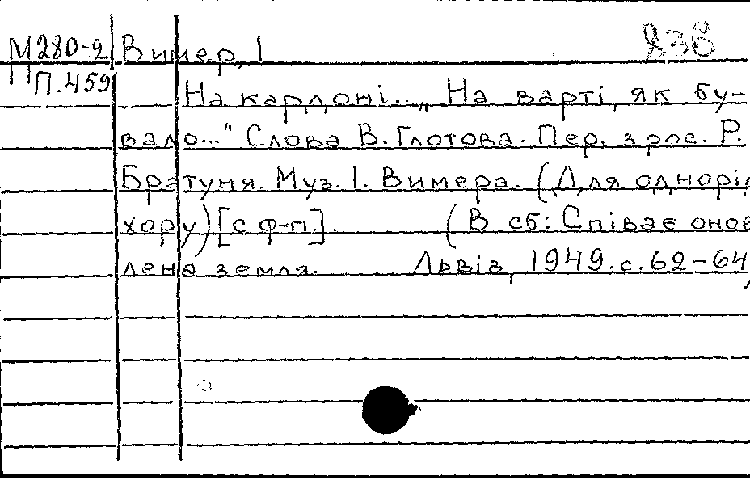 М 280-2 Вимер, І 238
П П.459
На кардоні... „На варті, як бу-
вало..." Слова В. Глотова. Пер. з рос. Р.
Братуня. Муз. І. Вимера. (Для однорід
хору) [с ф-п]. (В сб: Співає онов
лена земля. Львів, 1949. с. 62-64